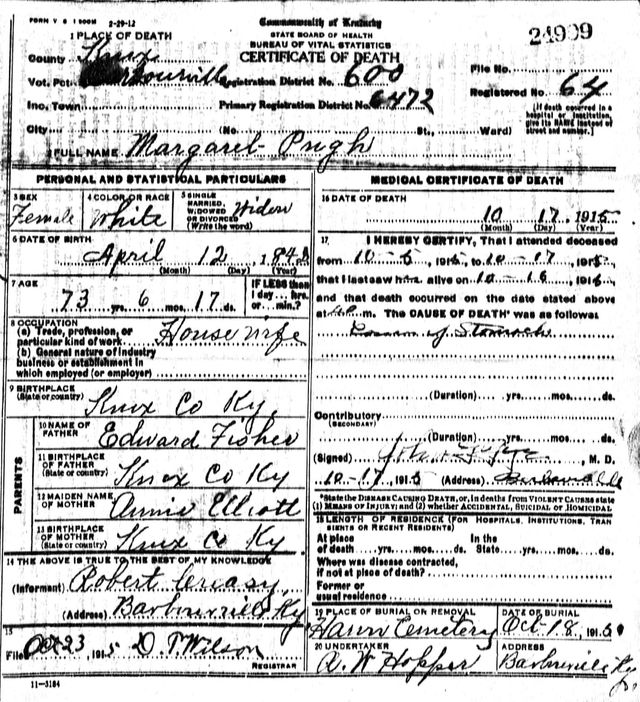 FORM V S 1 500M 2-29-12
Commonwealth of Kentucky
STATE BOARD OF HEALTH
BUREAU OF VITAL STATISTICS
CERTIFICATE OF DEATH
24909
1 PLACE OF DEATH
County Knox
Vot. Pct. Barbourville Registration District No. 600 File No.
Inc. Town Primary Registration District No. 6472 Registered No. 64
City (No. St., Ward)
[If death occurred in a hospital or institution, give its NAME instead of street and number.]
2 FULL NAME Margaret Pugh
PERSONAL AND STATISTICAL PARTICULARS
3 SEX Female
4 COLOR OR RACE White
5 SINGLE MARRIED, WIDOWED OR DIVORCED (Write the word) Widow
6 DATE OF BIRTH April 12, 184
(Month) (Day) (Year)
7 AGE 73 yrs. 6 mos. 17 ds.
IF LESS than 1 day.... hrs. or..... min.?
8 OCCUPATION
(a) Trade, profession, or particular kind of work Housewife
(b) General nature of industry business or establishment in which employed (or employer)
9 BIRTHPLACE (State or country) Knox Co Ky.
PARENTS
10 NAME OF FATHER Edward Fisher
11 BIRTHPLACE OF FATHER (State or country) Knox Co Ky
12 MAIDEN NAME OF MOTHER Annie Elliott
13 BIRTHPLACE OF MOTHER (State or country) Knox Co Ky
14 THE ABOVE IS TRUE TO THE BEST OF MY KNOWLEDGE
(Informant) Robert Creasy
(Address) Barbourville Ky
15
Filed Oct 23, 1915 D. T. Wilson
REGISTRAR
11-3184
MEDICAL CERTIFICATE OF DEATH
16 DATE OF DEATH
10 17, 1915
(Month) (Day) (Year)
17. I HEREBY CERTIFY, That I attended deceased
from 10-6, 1915, to 10-17, 1915,
that I last saw her alive on 10-16, 1915,
and that death occurred on the date stated above
at m. The CAUSE OF DEATH* was as follows:
of Stomach
(Duration) yrs. mos. ds.
Contributory
(SECONDARY)
(Duration) yrs. mos. ds.
(Signed) M. D.
10-17, 1915 (Address) Barbourville
*State the DISEASE CAUSING DEATH, or, in deaths from VIOLENT CAUSES state
(1) MEANS OF INJURY; and (2) whether ACCIDENTAL, SUICIDAL OR HOMICIDAL
18 LENGTH OF RESIDENCE (FOR HOSPITALS, INSTITUTIONS, TRANSIENTS OR RECENT RESIDENTS)
At place of death yrs. mos. ds. In the State yrs. mos. ds.
Where was disease contracted,
if not at place of death?
Former or
usual residence
19 PLACE OF BURIAL OR REMOVAL Cemetery
DATE OF BURIAL Oct-18, 1915
20 UNDERTAKER A. W. Hopper
ADDRESS Barbourville Ky